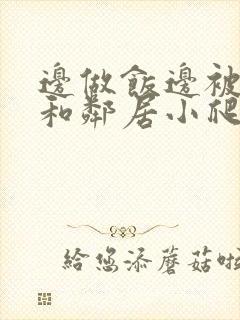 邊做飯邊被
和鄰居小爬
給您添蘑菇啦